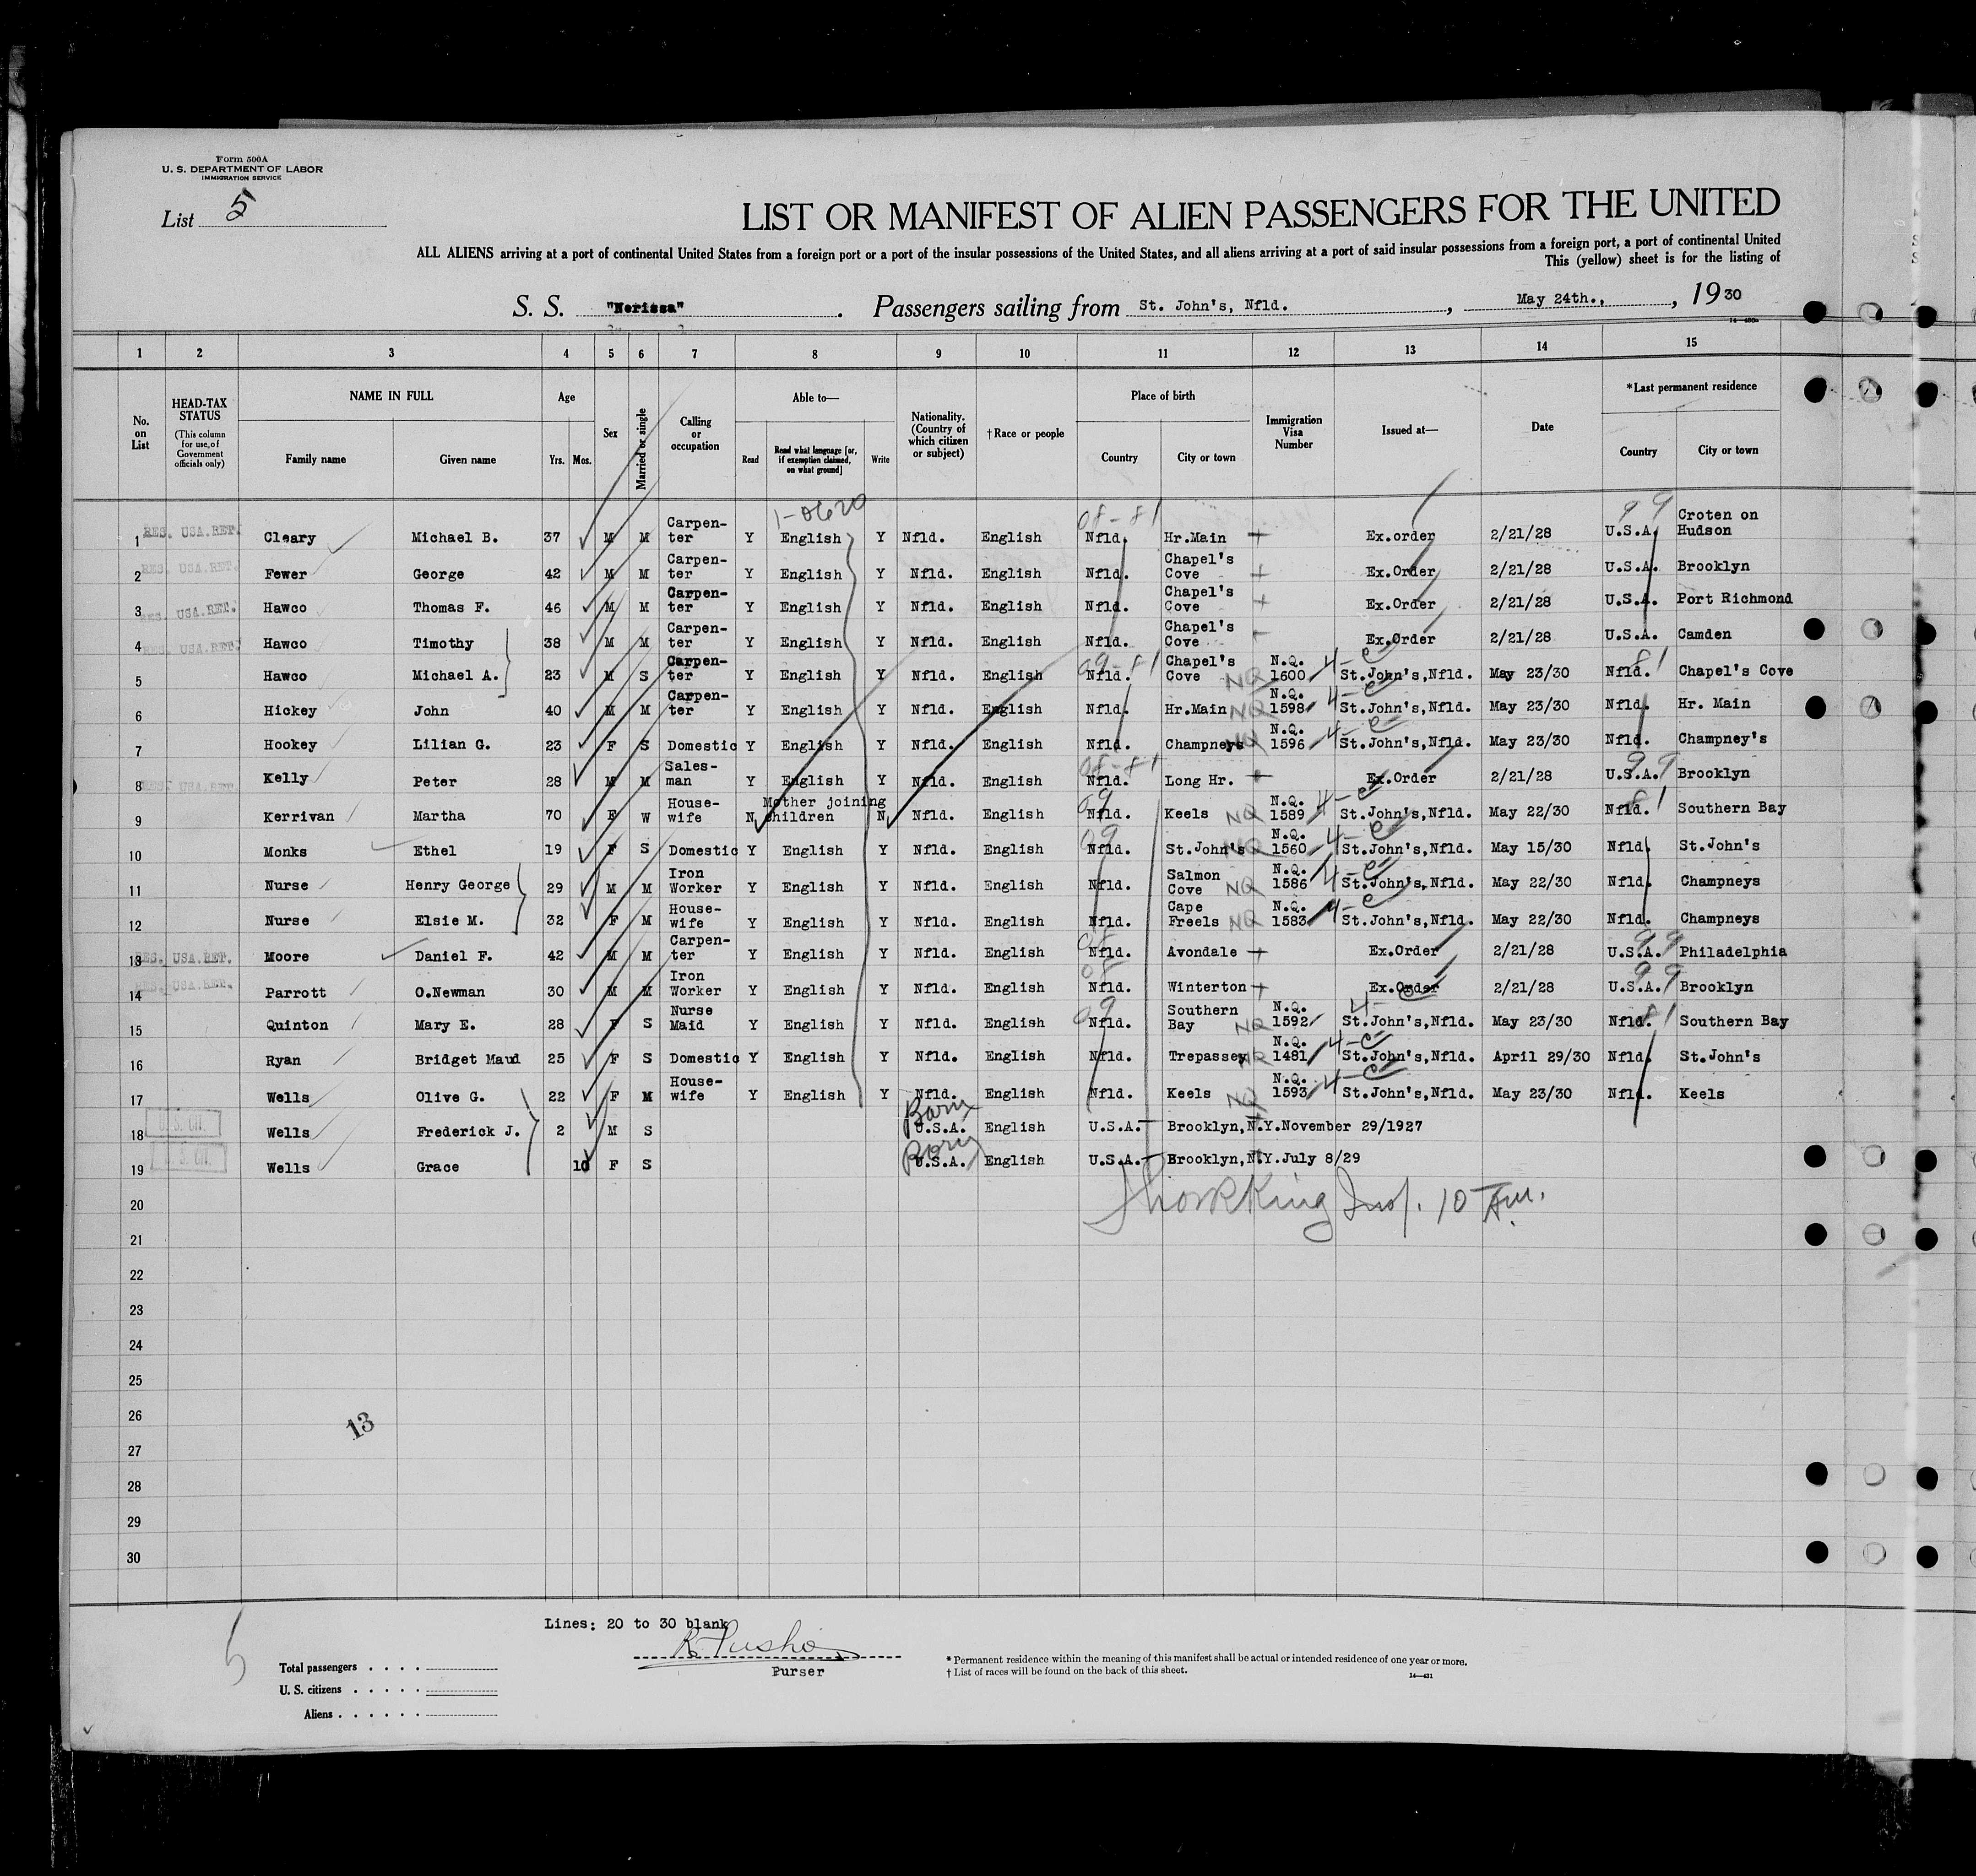 Form 500A
U. S. DEPARTMENT OF LABOR
IMMIGRATION SERVICE
List 5
LIST OR MANIFEST OF ALIEN PASSENGERS FOR THE UNITED
ALL ALIENS arriving at a port of continental United States from a foreign port or a port of the insular possessions of the United States, and all aliens arriving at a port of said insular possessions from a foreign port, a port of continental United
This (yellow) sheet is for the listing of
S. S. "Nerissa". Passengers sailing from St. John's, Nfld., May 24th., , 1930
1 2 3 4 5 6 7 8 9 10 11 12 13 14 15
No. on List
HEAD-TAX STATUS (This column for use of Government officials only)
NAME IN FULL Family name Given name
Age Yrs. Mos.
Sex
Married or single
Calling or occupation
Able to— Read Read what language [or, if exemption claimed, on what ground] Write
Nationality. (Country of which citizen or subject)
†Race or people
Place of birth Country City or town
Immigration Visa Number
Issued at—
Date
*Last permanent residence Country City or town
1-0620 08-81 99
1 RES. USA.RET. Cleary Michael B. 37 M M Carpen-ter Y English Y Nfld. English Nfld. Hr.Main Ex.order 2/21/28 U.S.A. Croten on Hudson
2 RES. USA.RET. Fewer George 42 M M Carpen-ter Y English Y Nfld. English Nfld. Chapel's Cove Ex.Order 2/21/28 U.S.A. Brooklyn
3 RES. USA.RET. Hawco Thomas F. 46 M M Carpen-ter Y English Y Nfld. English Nfld. Chapel's Cove Ex.Order 2/21/28 U.S.A. Port Richmond
4 RES. USA.RET. Hawco Timothy 38 M M Carpen-ter Y English Y Nfld. English Nfld. Chapel's Cove Ex.Order 2/21/28 U.S.A. Camden
5 Hawco Michael A. 23 M S Carpen-ter Y English Y Nfld. English 09-81 Nfld. Chapel's Cove NQ N.Q. 1600 4-C St.John's,Nfld. May 23/30 Nfld. 81 Chapel's Cove
6 Hickey John 40 M M Carpen-ter Y English Y Nfld. English Nfld. Hr.Main NQ N.Q. 1598 4-C St.John's,Nfld. May 23/30 Nfld. Hr. Main
7 Hookey Lilian G. 23 F S Domestic Y English Y Nfld. English Nfld. Champneys NQ N.Q. 1596 4-C St.John's,Nfld. May 23/30 Nfld. Champney's
8 RES. USA.RET. Kelly Peter 28 M M Sales-man Y English Y Nfld. English 08-81 Nfld. Long Hr. Ex.Order 2/21/28 U.S.A. 99 Brooklyn
9 Kerrivan Martha 70 F W House-wife N Mother joining children N Nfld. English 09 Nfld. Keels NQ N.Q. 1589 4-C St.John's,Nfld. May 22/30 Nfld. 81 Southern Bay
10 Monks Ethel 19 F S Domestic Y English Y Nfld. English 09 Nfld. St.John's NQ N.Q. 1560 4-C St.John's,Nfld. May 15/30 Nfld. St.John's
11 Nurse Henry George 29 M M Iron Worker Y English Y Nfld. English Nfld. Salmon Cove NQ N.Q. 1586 4-C St.John's,Nfld. May 22/30 Nfld. Champneys
12 Nurse Elsie M. 32 F M House-wife Y English Y Nfld. English Nfld. Cape Freels NQ N.Q. 1583 4-C St.John's,Nfld. May 22/30 Nfld. Champneys
13 RES. USA.RET. Moore Daniel F. 42 M M Carpen-ter Y English Y Nfld. English 08 Nfld. Avondale Ex.Order 2/21/28 U.S.A. 99 Philadelphia
14 RES. USA.RET. Parrott O.Newman 30 M M Iron Worker Y English Y Nfld. English 08 Nfld. Winterton Ex.Order 2/21/28 U.S.A. 99 Brooklyn
15 Quinton Mary E. 28 F S Nurse Maid Y English Y Nfld. English 09 Nfld. Southern Bay NQ N.Q. 1592 4-C St.John's,Nfld. May 23/30 Nfld. 81 Southern Bay
16 Ryan Bridget Maud 25 F S Domestic Y English Y Nfld. English Nfld. Trepassey NQ N.Q. 1481 4-C St.John's,Nfld. April 29/30 Nfld. St.John's
17 Wells Olive G. 22 F M House-wife Y English Y Nfld. English Nfld. Keels NQ N.Q. 1593 4-C St.John's,Nfld. May 23/30 Nfld. Keels
18 U.S. CIT. Wells Frederick J. 2 M S Born U.S.A. English U.S.A. Brooklyn,N.Y.November 29/1927
19 U.S. CIT. Wells Grace 10 F S Born U.S.A. English U.S.A. Brooklyn,N.Y.July 8/29
20
King Insp. 10 Am.
21
22
23
24
25
26
13
27
28
29
30
Lines: 20 to 30 blank
Purser
5
Total passengers
U. S. citizens
Aliens
* Permanent residence within the meaning of this manifest shall be actual or intended residence of one year or more.
† List of races will be found on the back of this sheet.
14—431